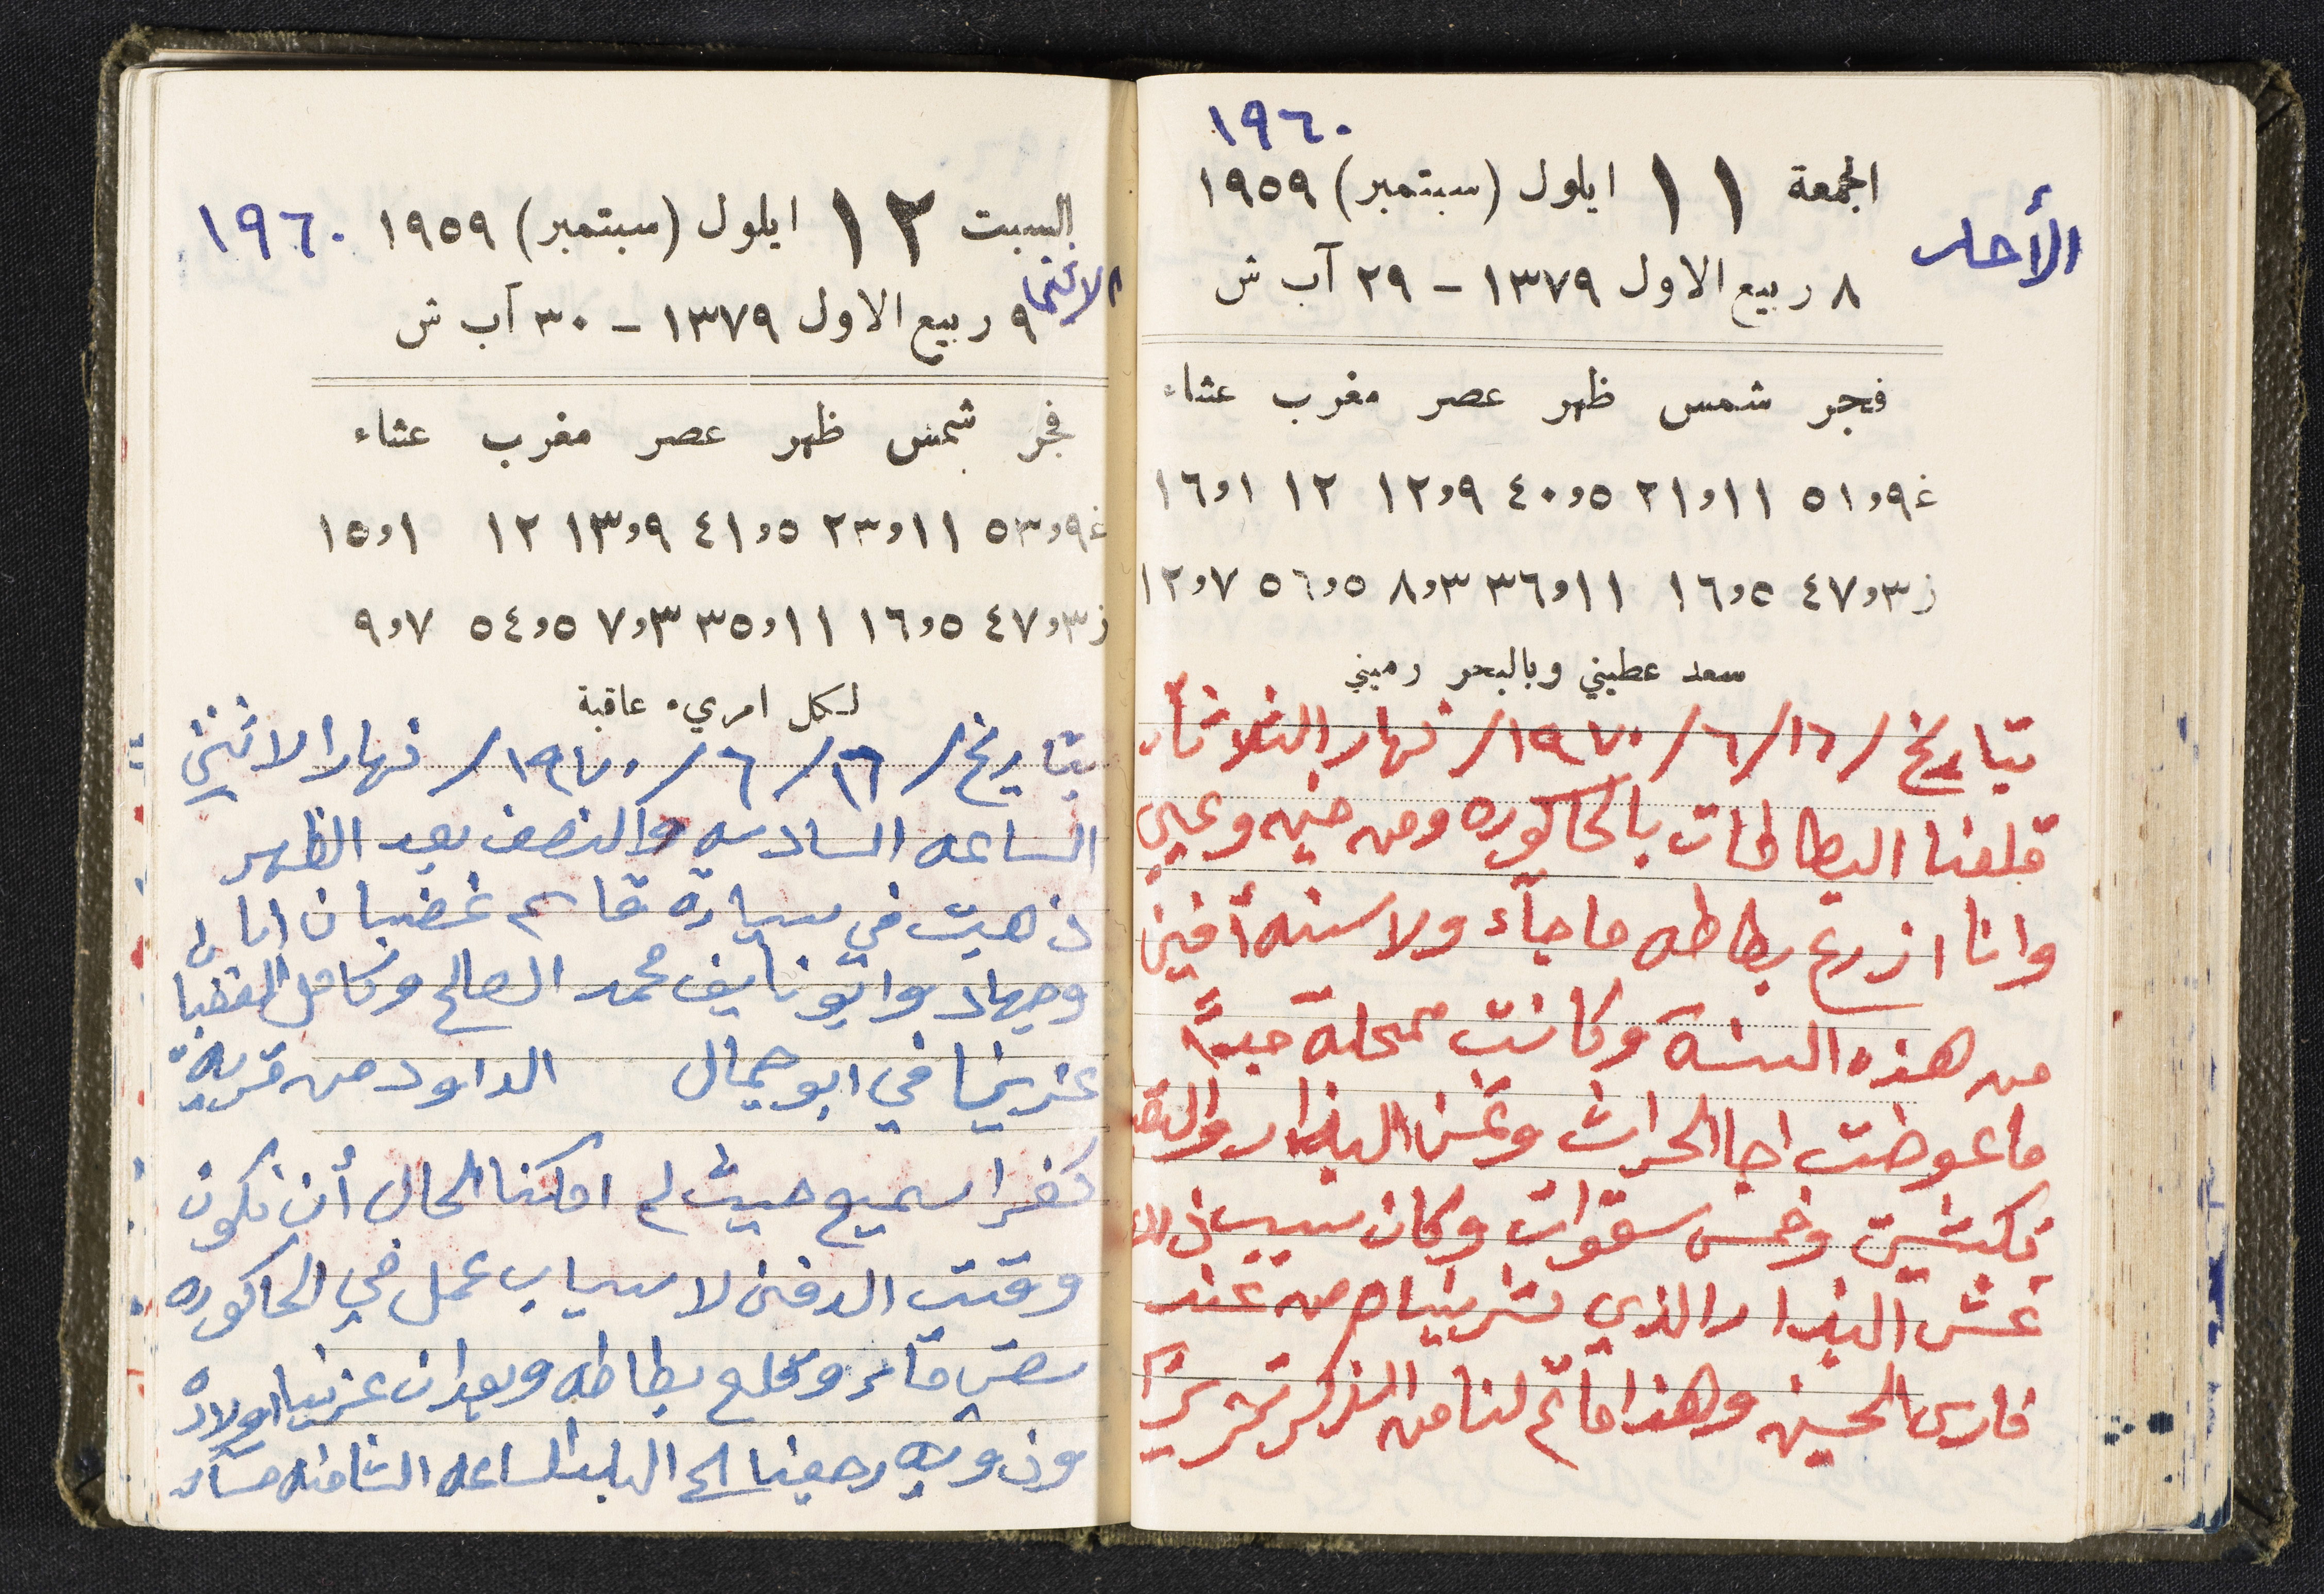 ١٩٦٠
الأحد
الجمعة ١١ ايلول (سبتمبر) ١٩٥٩
٨ ربيع الاول ١٣٧٩ - ٢٩ آب ش
فجر شمس ظهر عصر مغرب عشاء
غ ٩و٥١ ١١و٢١ ٥و٤٠ ٩و١٢ ١٢ ١و١٦
ز ٣و٤٧ ٥و١٦ ١١و٣٦ ٣و٨ ٥و٥٦ ٧و١٢
سعد عطيني وبالبحر رميني
بتاريخ /١٦/ ٦/ ١٩٧٠/ نهار الثلاثاء
قلعنا البطاطات بالحاكوره ومن حينه وعيي
وانا ازرع بطاطه ما جاء ولا سنه أفين
من هذه السنة وكانت ممحلة جداً
ما عوضت اجا الحراث وثمن البذار والتعب
نكبتين وخمس سقوات وكان سبب ذلك
غش البذار الذي شريناه من عند
فارس الحسين وهذا ما تم لنا من الذكر تحريرًا
السبت ١٢ ايلول (سبتمبر) ١٩٥٩ ١٩٦٠
الاثنين
٩ ربيع الاول ١٣٧٩ - ٣٠ آب ش
فجر شمس ظهر عصر مغرب عشاء
غ ٩و٥٣ ١١و٢٣ ٥و٤١ ٩و١٣ ١٢ ١و١٥
ز ٣و٤٧ ٥و١٦ ١١و٣٥ ٣و٧ ٥و٥٤ ٧و٩
لكل امريء عاقبة
بتاريخ / ١٦/ ٦/ ١٩٧٠/ نهار الاثنين
الساعه السادسه والنصف بعد الظهر
ذهبت في سيارة قاسم غضبان انا
وجهاد وابو نايف محمد الصالح وكامل الغضبا
عزينا في ابو جمال الداود من قرية
كفر اسميع حيث لم امكنا الحال أن نكون
وقت الدفن لاسباب عمل في الحاكوره
سقي ماء وقلع بطاطه وبعد ان عزينا اولاده
وذويه رجعنا الى البلد الساعه الثامنه مساءً